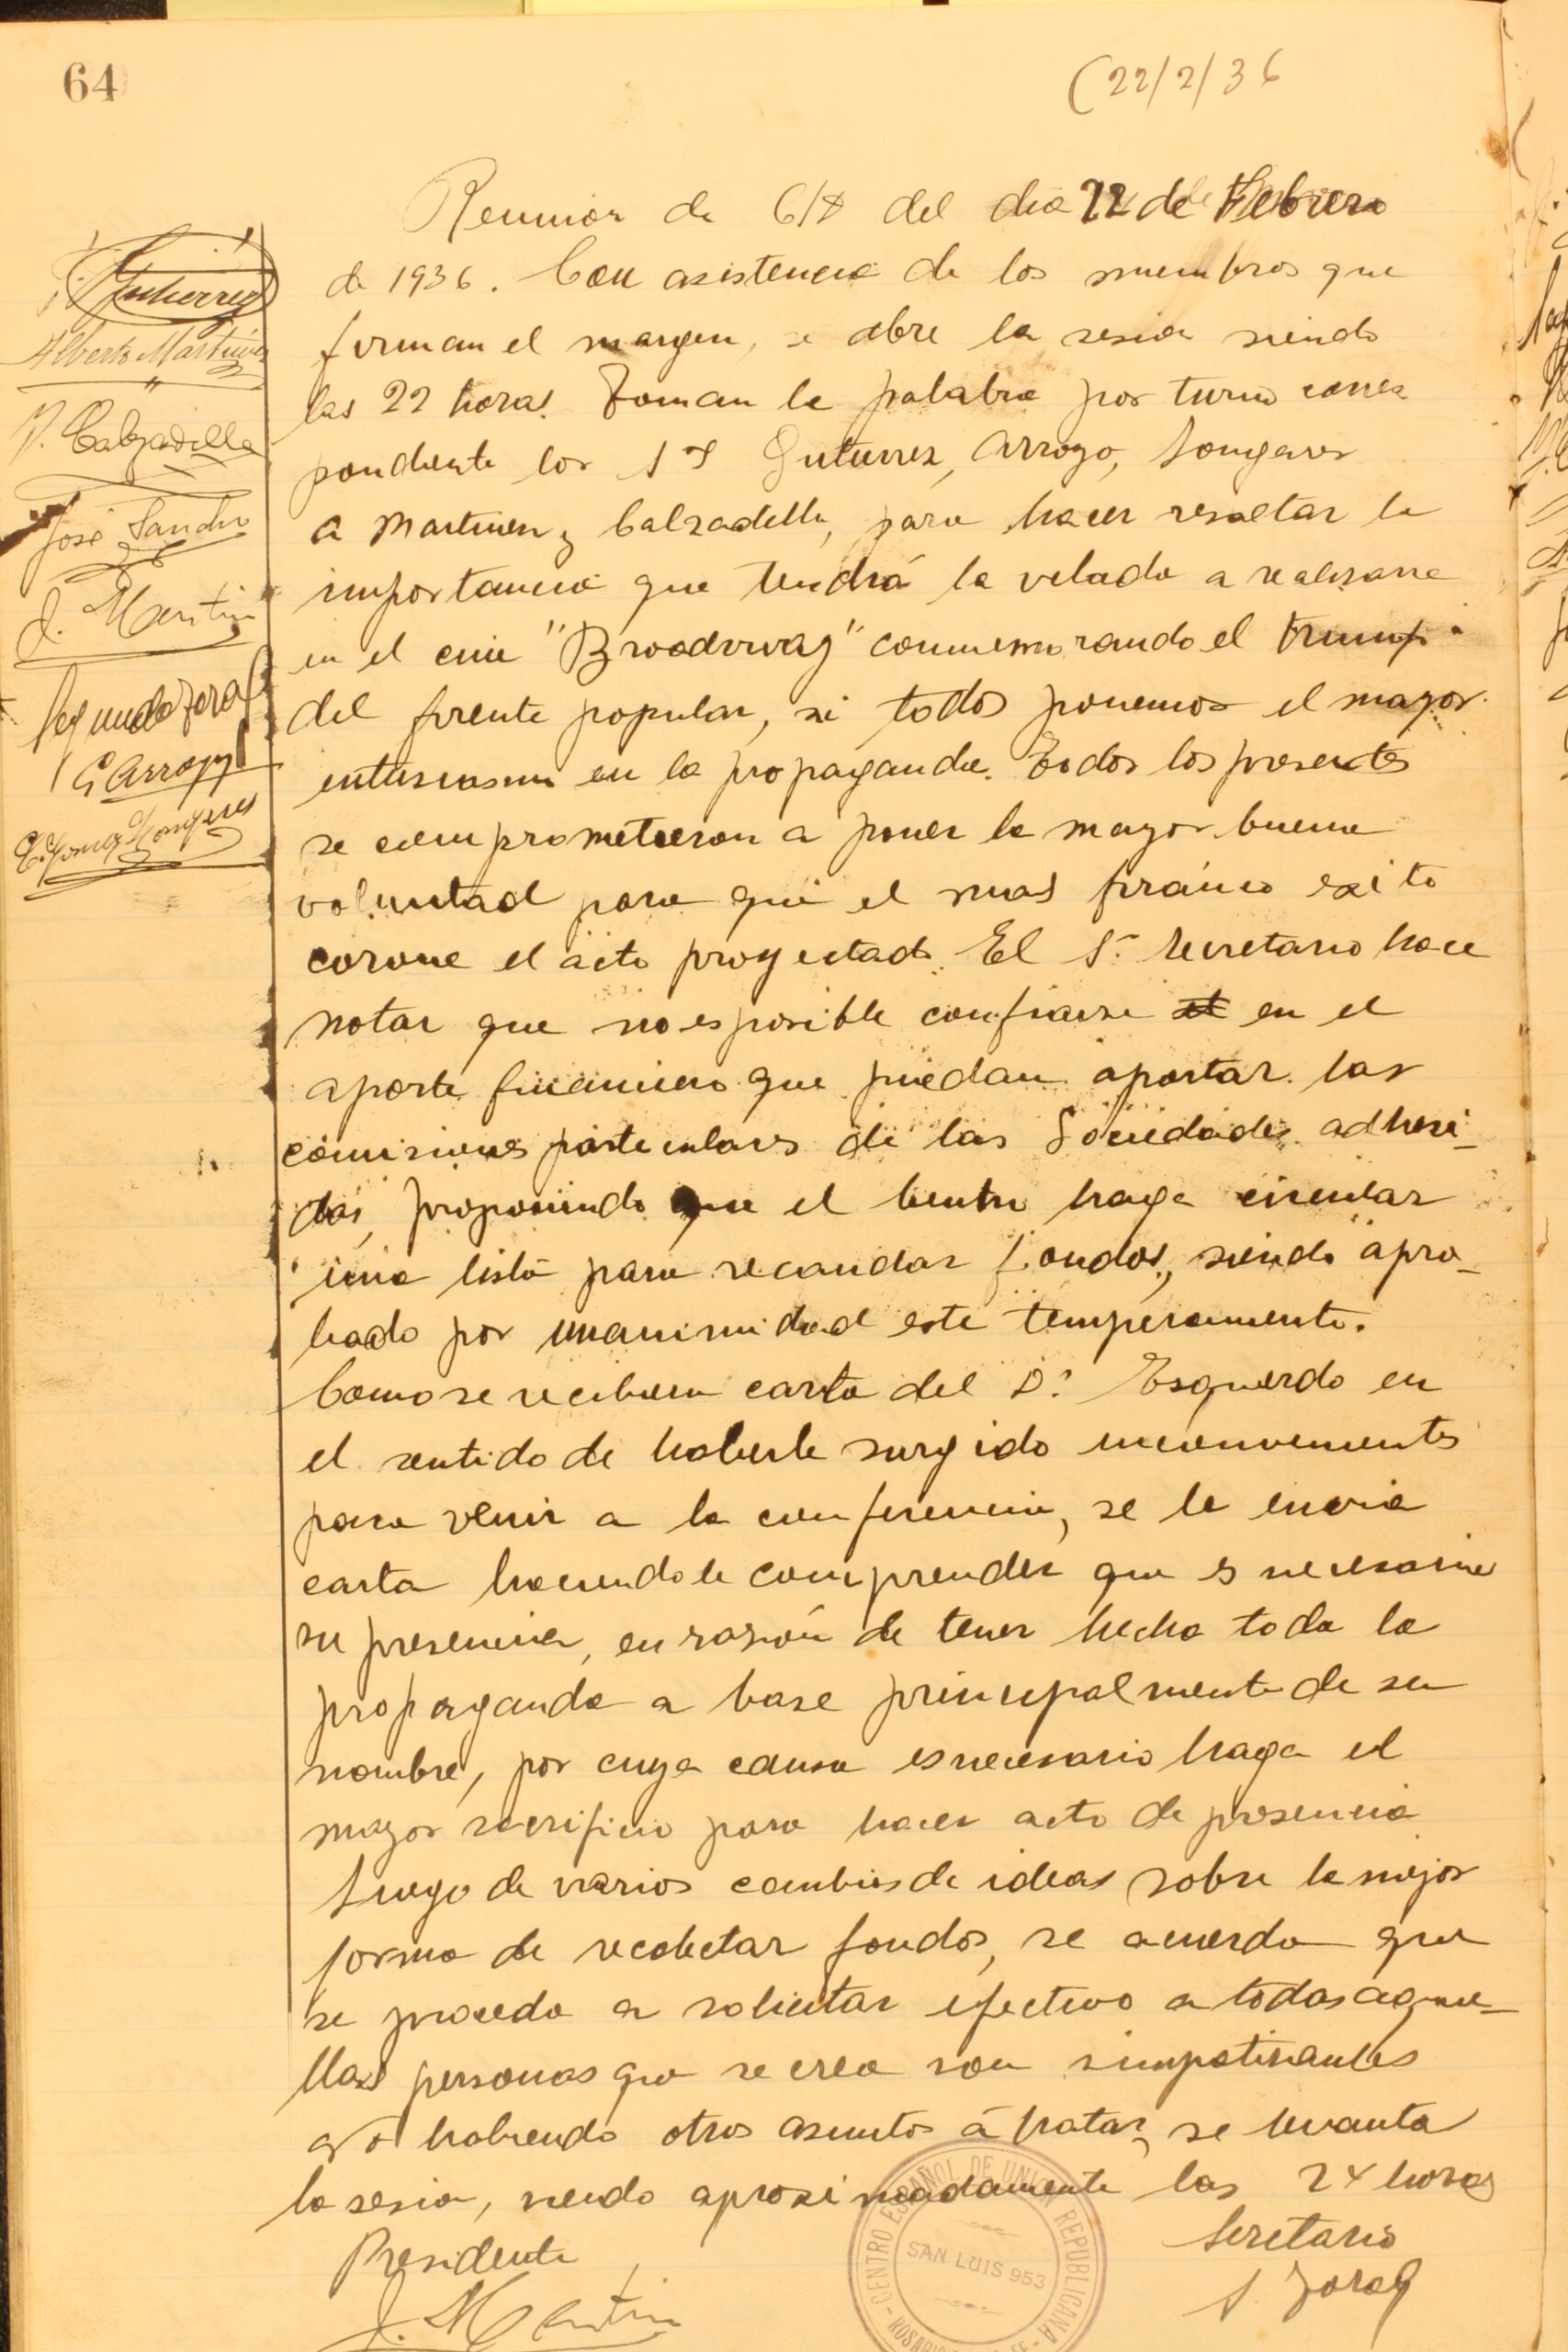 64
(22/2/36
Reunion de C/D del dia 22 de Febrero
de 1936. Con asistencia de los miembros que
firman el margen, se abre la sesion siendo
las 22 horas. Toman la palabra por turno corres
pondiente los Sres Gutierrez, Arroyo, Longares
A Martinez y Calzadilla, para hacer resaltar la
importancia que tendrá la velada a realizarse
en el cine "Broadway" conmemorando el triunfo
del frente popular, si todos ponemos el mayor
entusiasmo en la propaganda. Todos los presentes
se comprometieron a poner la mayor buena
voluntad para que el mas franco exito
corone el acto proyectado. El Sr. Secretario hace
notar que no es posible confiarse en el
aporte financiero que puedan aportar las
comisiones particulares de las Sociedades adheri-
das, proponiendo que el Centro haga circular
una lista para recaudar fondos, siendo apro-
bado por unanimidad este temperamento.
Como se recibiera carta del Dr. Esquerdo en
el sentido de haberle surgido inconvenientes
para venir a la conferencia, se le envia
carta haciendole comprender que es necesaria
su presencia, en razón de tener hecha toda la
propaganda a base principalmente de su
nombre, por cuya causa es necesario haga el
mayor sacrificio para hacer acto de presencia
Luego de varios cambios de ideas sobre la mejor
forma de recolectar fondos, se acuerda que
se proceda a solicitar efectivo a todas aque-
llas personas que se crea son simpatizantes
No habiendo otros asuntos á tratar, se levanta
la sesion, siendo aproximadamente las 24 horas
Presidente
Secretario
J. Martin
S. Joraf
Gutierrez
Alberto Martinez
V. Calzadilla
José Sancho
J. Martin
Segundo Joraf
G Arroyo
E. Gomez Longares
CENTRO ESPAÑOL DE UNION REPUBLICANA
SAN LUIS 953